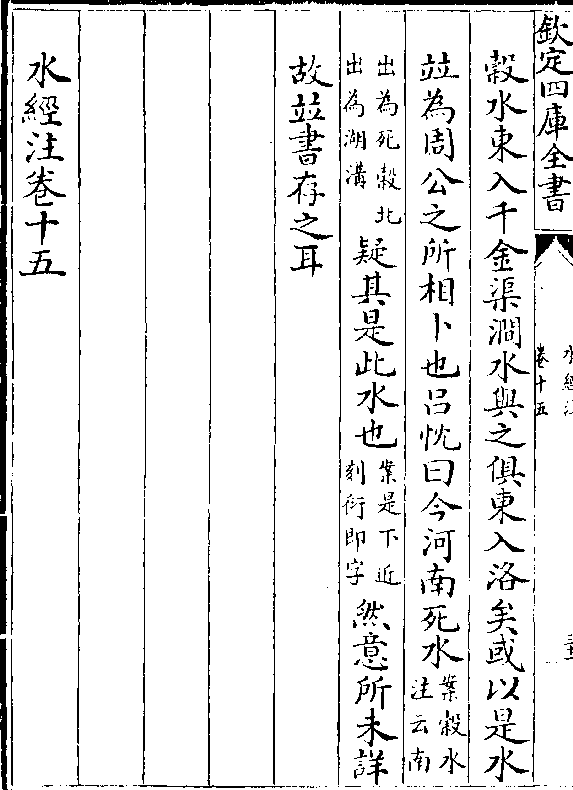 欽定四庫全書
水經注
卷十五
穀水東入千金渠澗水與之俱東入洛矣或以是水
並為周公之所相卜也吕忱曰今河南死水案穀水注云南
出為死穀北出為湖溝疑其是此水也案是下近刻衍即字然意所未詳
故並書存之耳
水經注卷十五